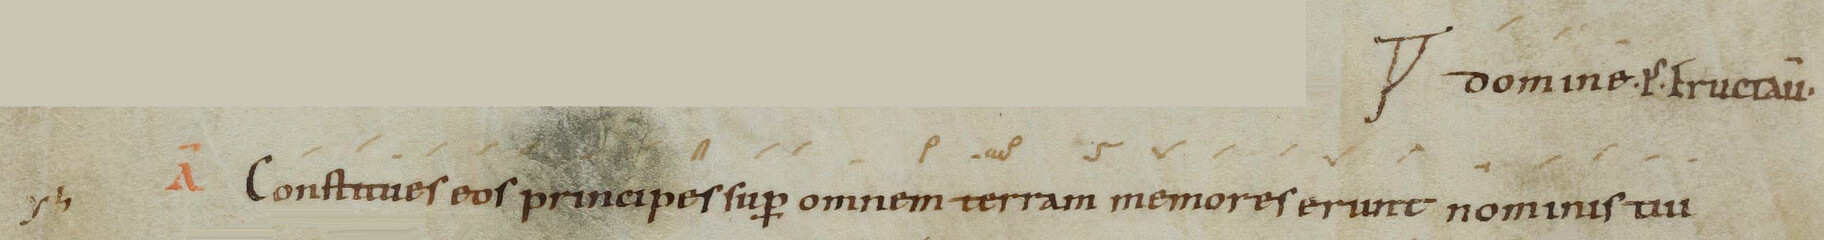 domine. P̃. Eructaũ.
Ã Constitues eos principes suꝑ omnem terram memores erunt nominis tui